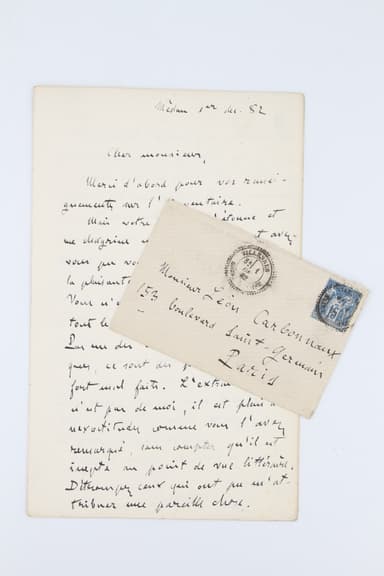 Médan 1er déc. 82
Cher monsieur,
Merci d'abord pour vos rensei-
gnements sur l'
Mais votre m'étonne et
me chagrine
vous que vo
la plaisant
Vous n'a
tout le
Par un des
ques, ce sont des
fort mal faits. L'extra
n'est pas de moi, il est plein d'
inexactitudes comme vous l'avez
remarqué, sans compter qu'il est
inepte au point de vue littéraire.
Détrompez ceux qui ont pu m'at-
tribuer une pareille chose.
Monsieur Léon Carbonnaux
153 boulevard Saint-Germain
Paris
15